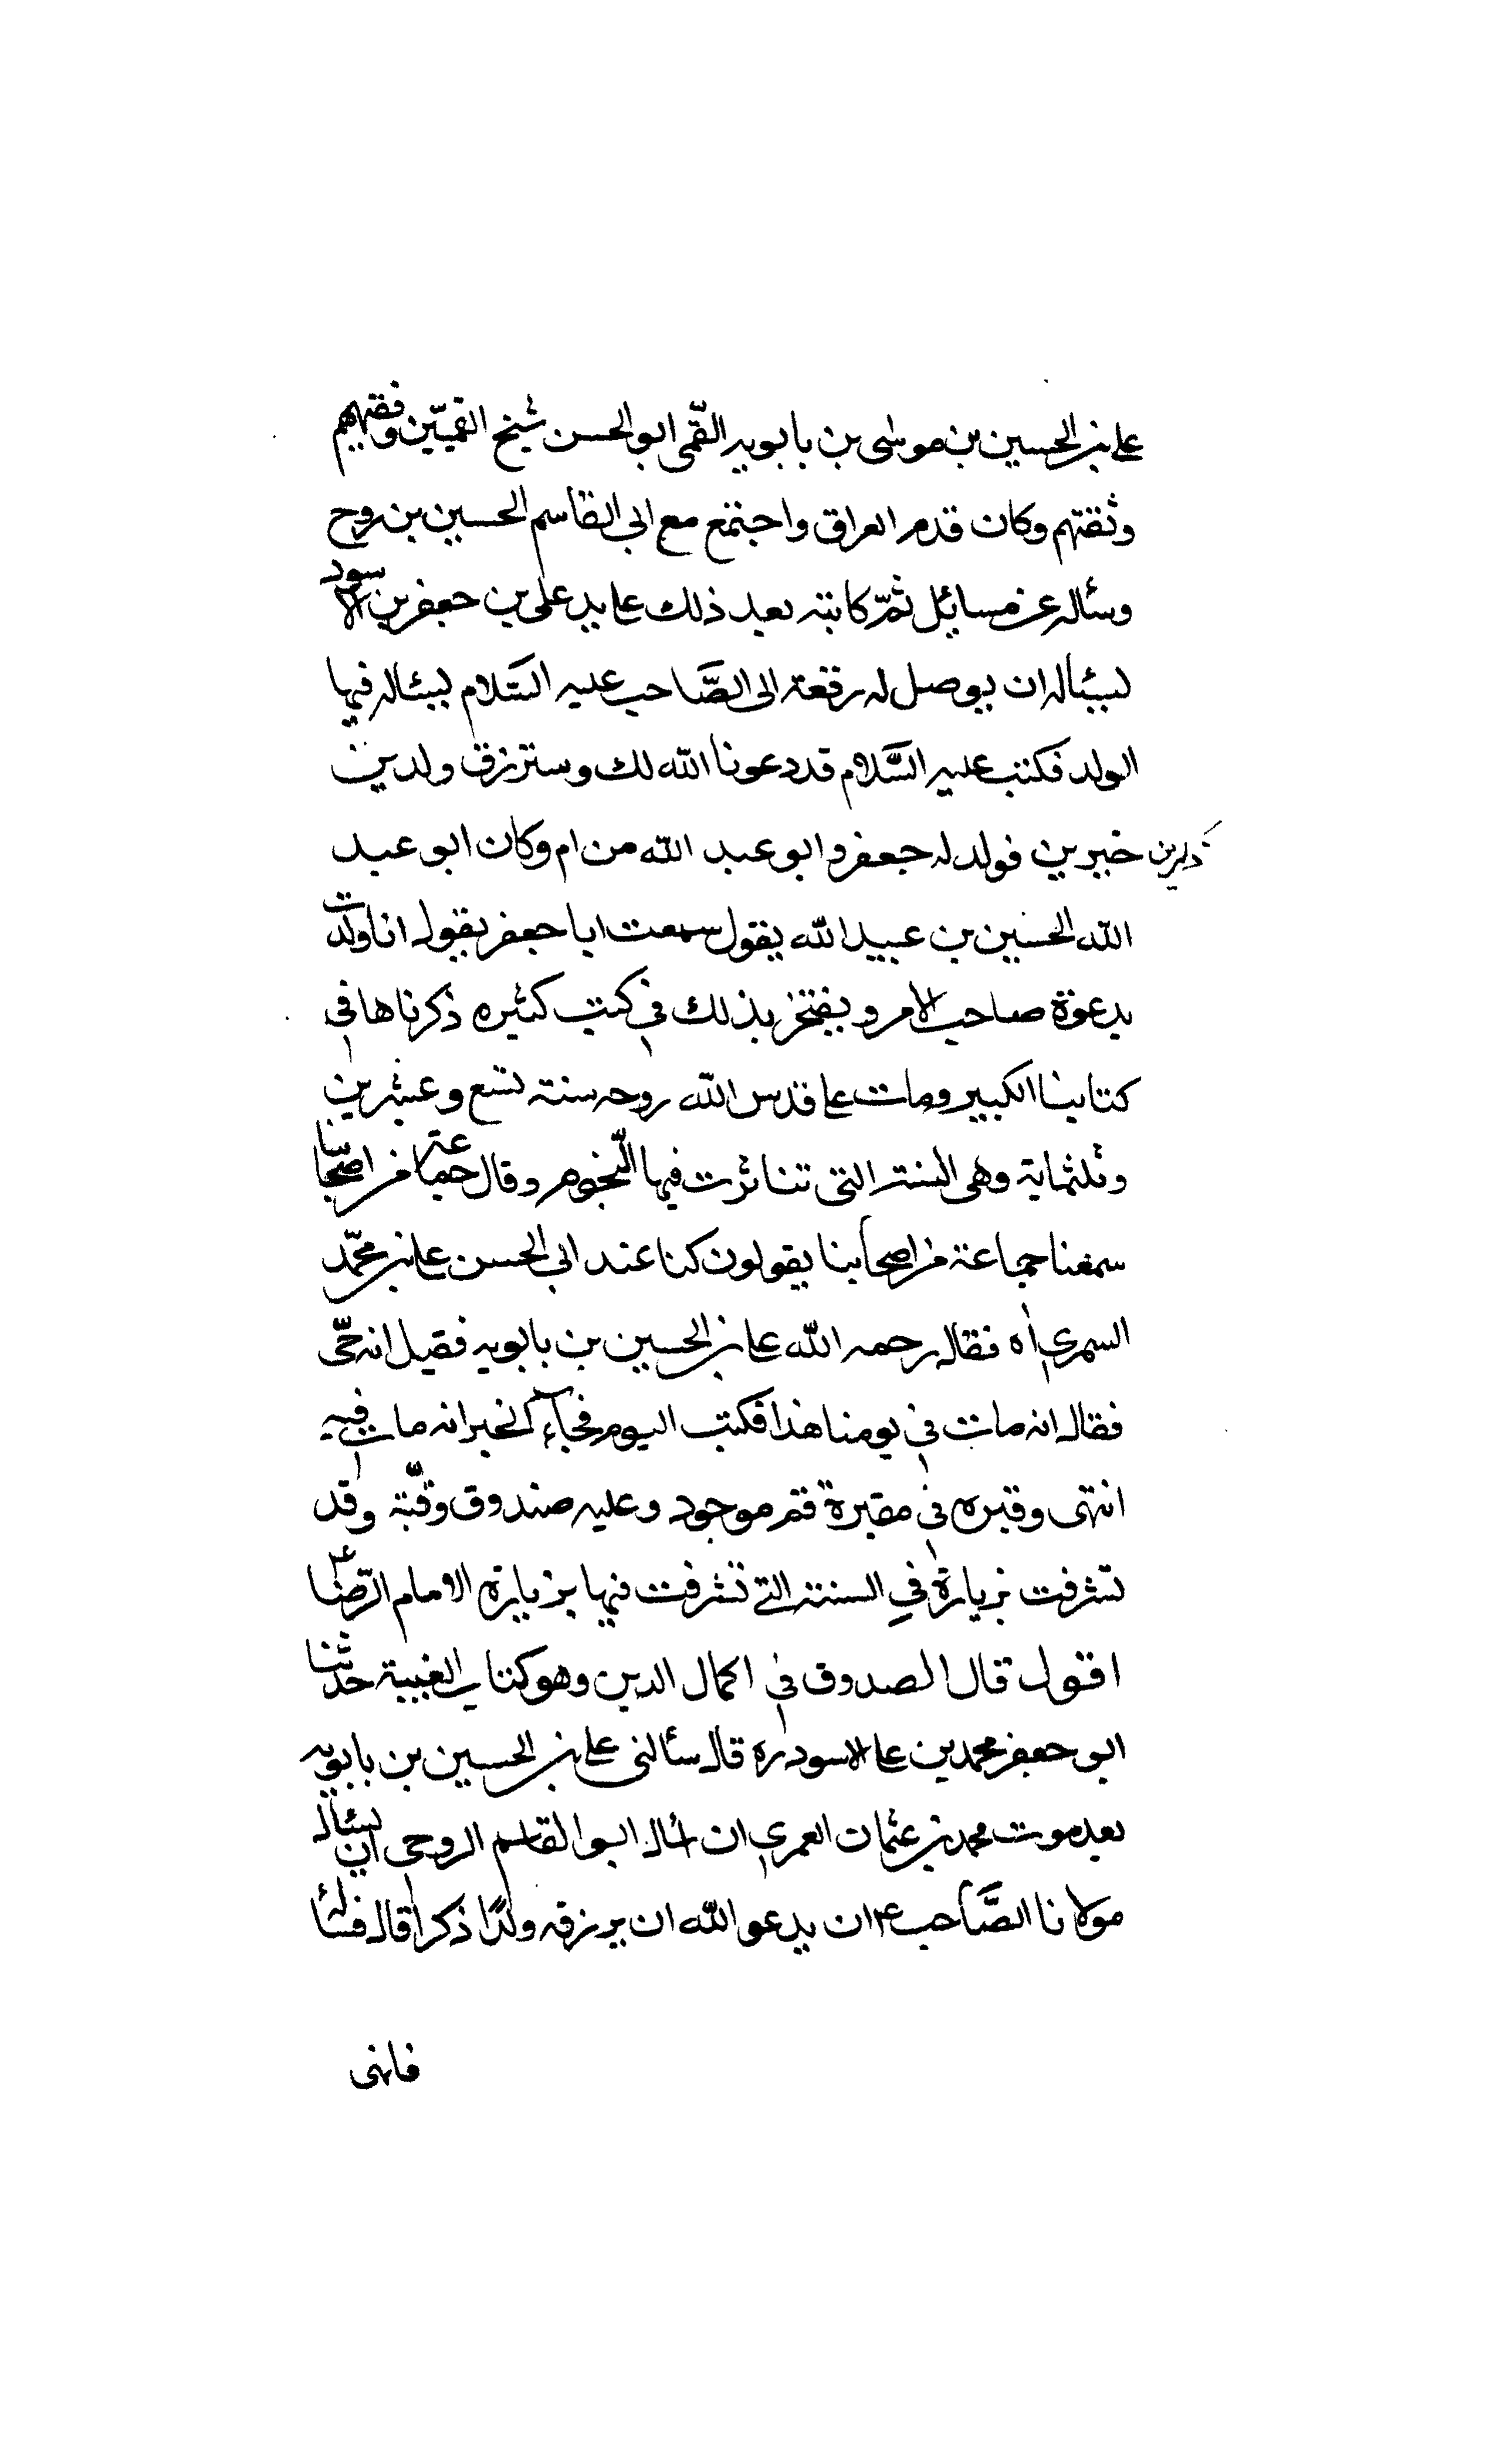 علي بن الحسين بن موسى بن بابويه القمّى ابو الحسن شيخ القميّين وفقيههم
وثقتهم وكان قدم العراق واجتمع مع ابي القاسم الحسين بن روح
وسئاله عن مسايل ثمّ كاتبه بعد ذلك علي يد على بن جعفر بن الاسود
ليسئاله ان يوصل له رقعة الى الصَّاحب عليه السّلام ليسئاله فيها
الولد فكتب عليه السَّلام قد دعونا اللّه لك وسترزق ولدين
ذكرين خيرين فولد له جعفر و ابو عبد اللّه من ام وكان ابو عبد
اللّه الحسين بن عبيد اللّه يقول سمعت ابا جعفر يقول انا ولدت
بدعوة صاحب الامر و يفتخر بذلك في كتب كثيره ذكرناها في
كتابنا الكبير ومات علي قدس اللّه روحه سنة تسع وعشرين
وثلثماية وهى السنة التى تناثرت فيها النّجوم وقال جماعة من اصحابنا
سمعنا جماعة من اصحابنا يقولون كنا عند ابي الحسن علي بن محمّد
السمري ره فقال رحمه اللّه علي بن الحسين بن بابويه فقيل انه حّى
فقال انه مات في يومنا هذا فكتب اليوم فجاء الخبر انه مات فيه
انتهى وقبره في مقبرة قم موجود وعليه صندوق وقبّة وقد
تشرفت بزيارة في السنة التي تشرفت فيها بزيارة الامام الرّضا ع
اقول قال الصدوق في اكمال الدين وهو كتاب الغيبة حدّثنا
ابو جعفر محمد بن علي الاسود ره قال سئالنى علي بن الحسين بن بابويه
بعد موت محمد بن عثمان العمري ان اسال ابو القاسم الروحى ان يسئال
مولانا الصَّاحب ع ان يدعو اللّه ان يرزقه ولدًا ذكرا قال فسئالته
فانهى